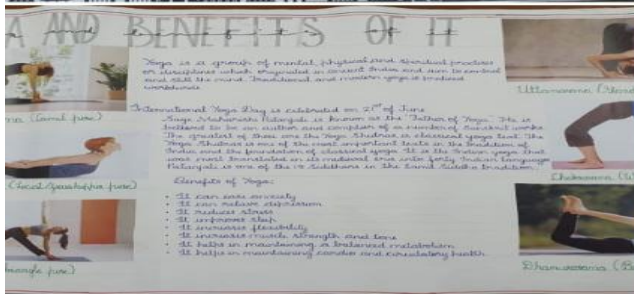 A AND BENEFITS OF IT
Yoga is a group of mental, physical and spiritual practices
or disciplines which originated in ancient India and aim to control
and still the mind. Traditional and modern yoga is practiced
worldwide.
International Yoga Day is celebrated on 21st of June
Sage Maharshi Patanjali is known as the "Father of Yoga". He is
believed to be an author and compiler of a number of Sanskrit works.
The greatest of these are the Yoga Shutras a classical yoga text. The
Yoga Shutras is one of the most important texts in the tradition of
India and the foundation of classical yoga. It is the Indian yoga that
was most translated in its medieval era into forty Indian languages
Patanjali is one of the 18 Siddhars in the Tamil Siddha tradition.
Benefits of Yoga:
• It can ease anxiety
• It can relieve depression
• It reduces stress
• It improves sleep
• It increases flexibility
• It increases muscle strength and tone
• It helps in maintaining a balanced metabolism
• It helps in maintaining cardio and circulatory health.
na (Camel pose)
(Locust/Grasshopper pose)
iangle pose)
Uttanasana (Stand
Chakrasana (W
Dhanurasana (B